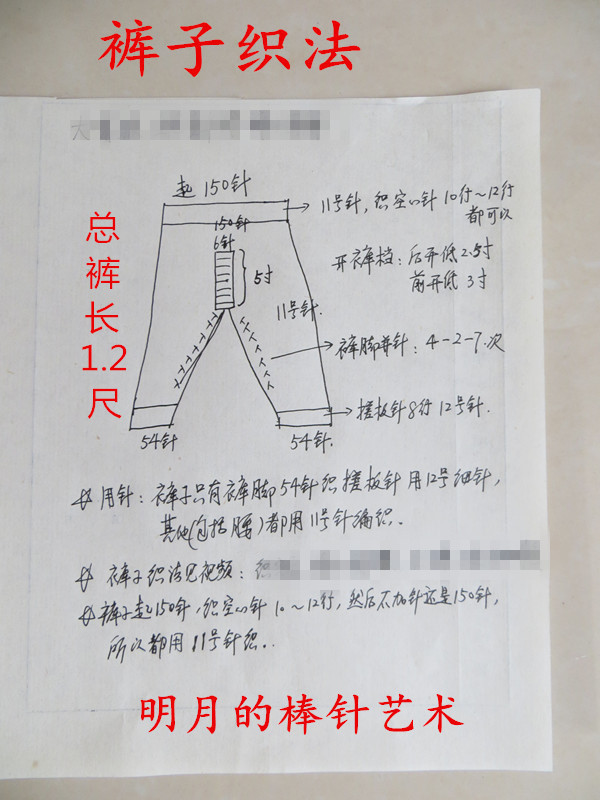 裤子织法
起150针
11号针，织空心针10行～12行
都可以
150针
6针
总裤长1.2尺
5寸
开裤档：后开低2.5寸
前开低3寸
11号针.
裤脚并针：4-2-7次
搓板针8行12号针.
54针
54针.
用针：裤子只有裤脚54针织搓板针用12号细针，
其他(包括腰)都用11号针编织..
裤子织法见视频：
裤子起150针，织空心针10～12行，然后不加针还是150针，
所以都用11号针织..
明月的棒针艺术